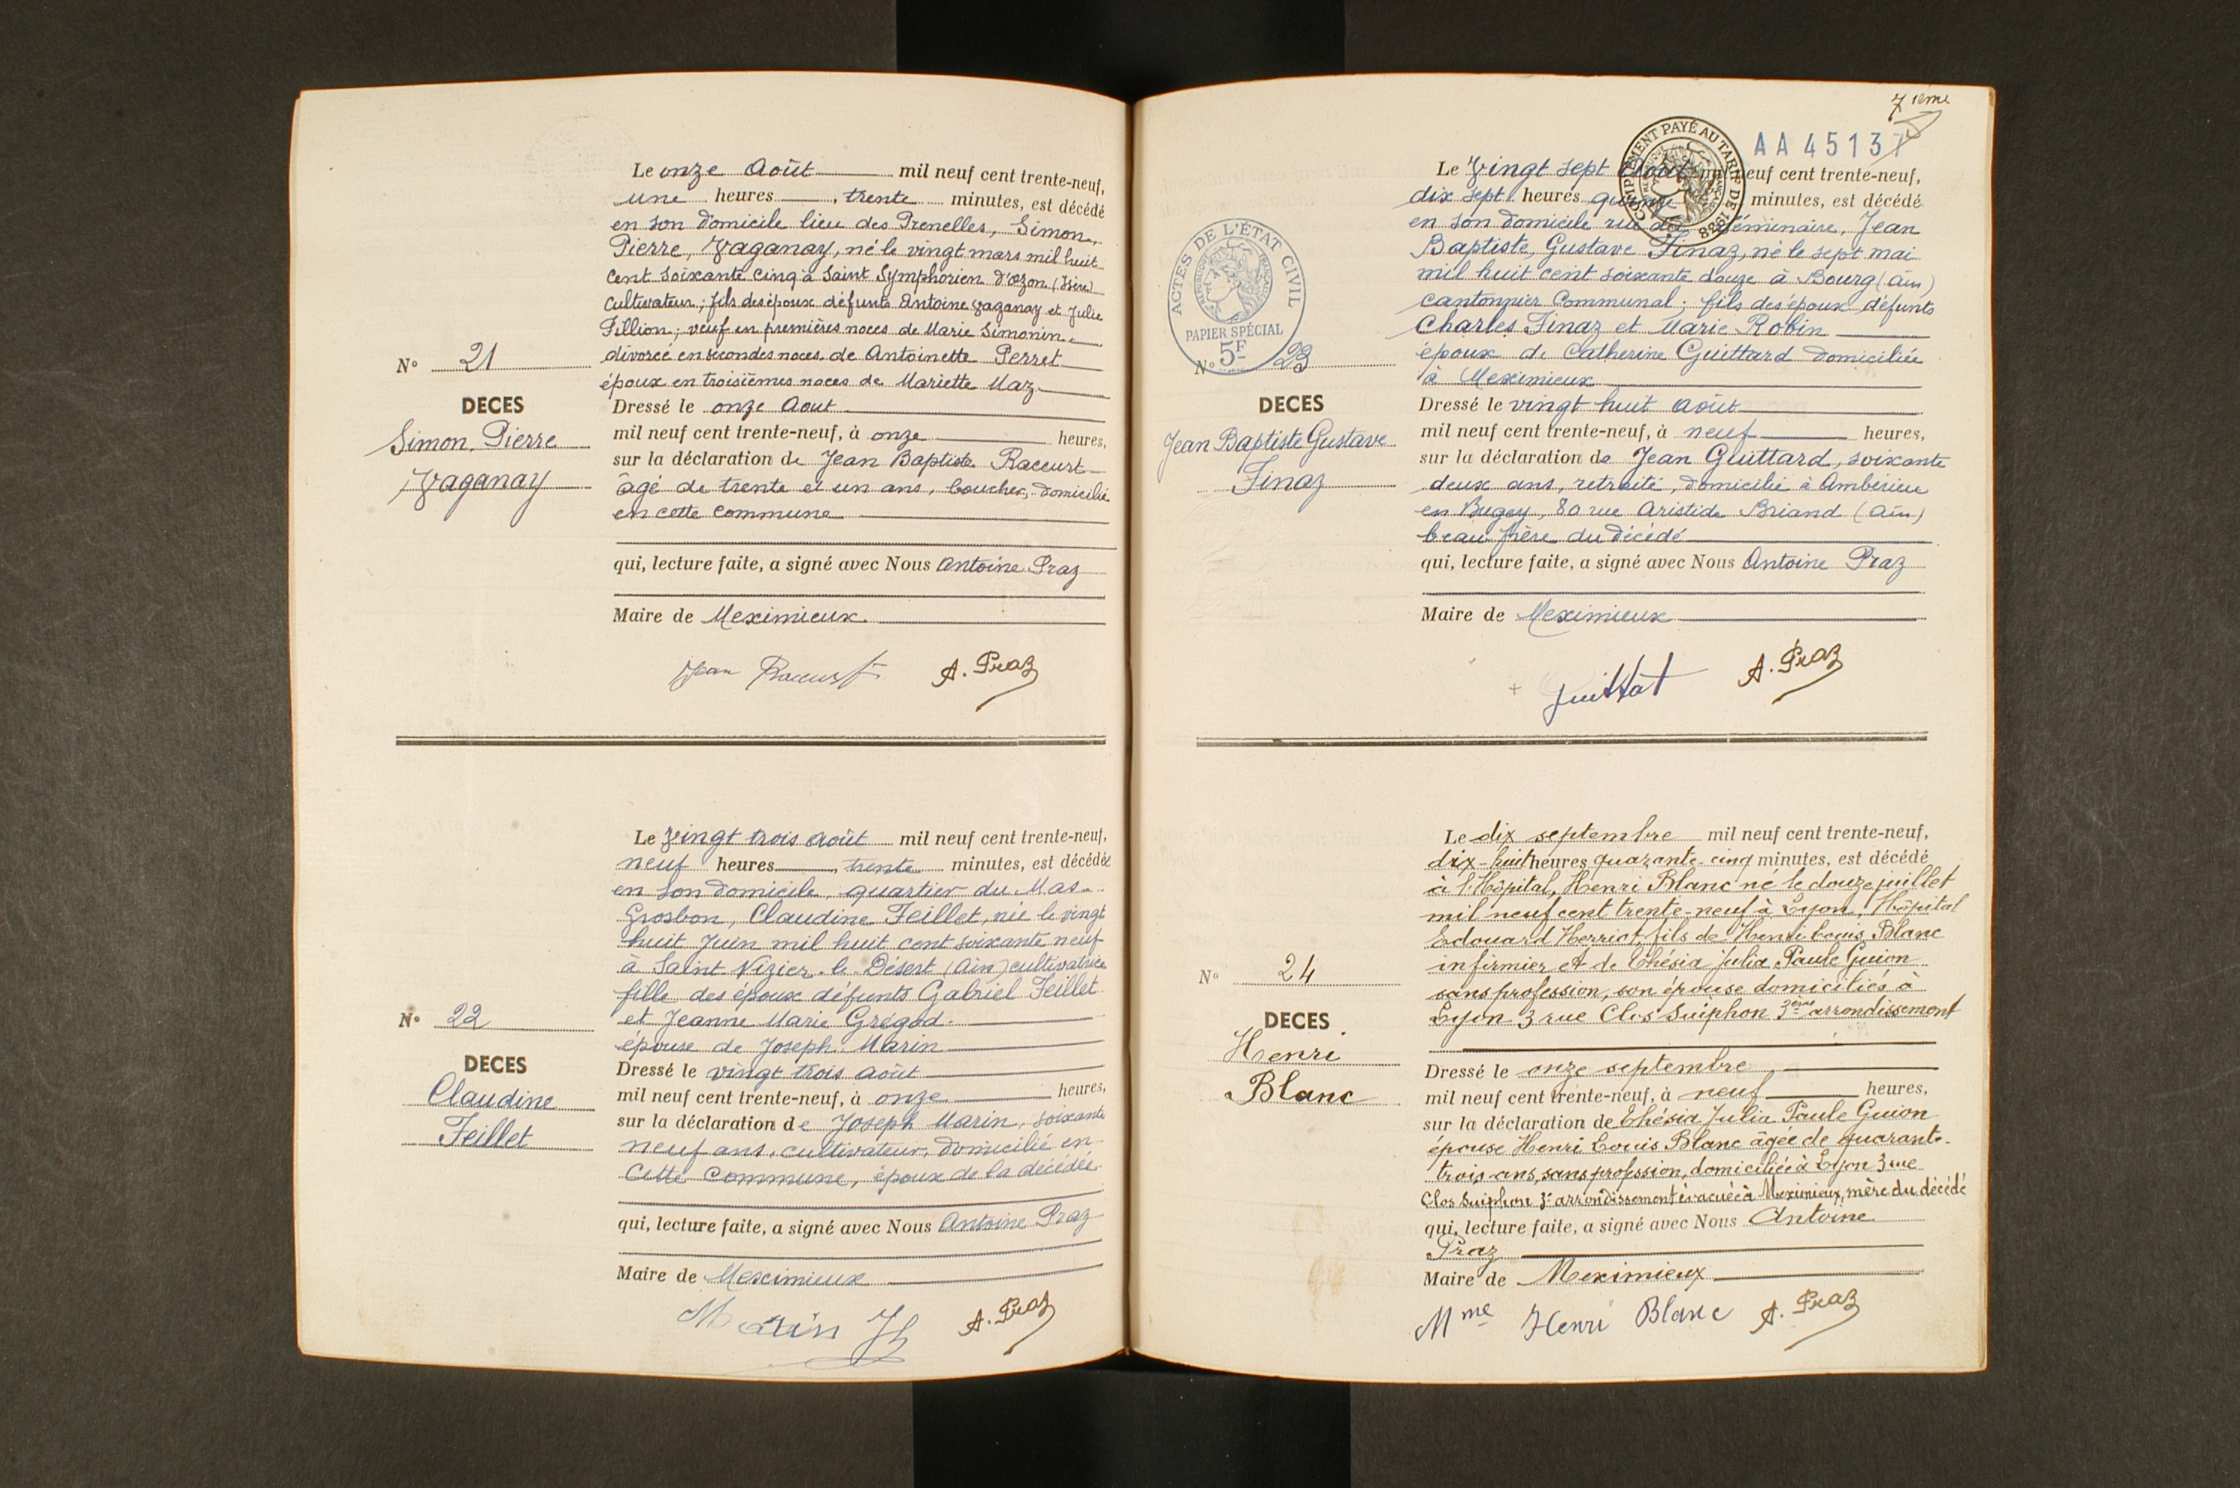 Le onze Août mil neuf cent trente-neuf,
une heures, trente minutes, est décédé
en son domicile lieu des Prenelles, Simon,
Pierre, Vaganay, né le vingt mars mil huit
cent soixante cinq à Saint Symphorien d'Ozon (Isère)
cultivateur; fils des époux défunts Antoine Vaganay et Julie
Fillion; veuf en premières noces de Marie Simonin
divorcé en secondes noces de Antoinette Perret
époux en troisièmes noces de Mariette Maz
N° 21
DECES
Simon, Pierre
Vaganay
Dressé le onze Aout
mil neuf cent trente-neuf, à onze heures,
sur la déclaration de Jean Baptiste Raccurt
âgé de trente et un ans, boucher, domicilié
en cette commune
qui, lecture faite, a signé avec Nous Antoine Praz
Maire de Meximieux
Jean Raccurt A. Praz
Le vingt trois Août mil neuf cent trente-neuf,
neuf heures, trente minutes, est décédée
en son domicile quartier du Mas
Grosbon, Claudine Feillet, née le vingt
huit Juin mil huit cent soixante neuf
à Saint Nizier-le-Désert (Ain) cultivatrice
fille des époux défunts Gabriel Feillet
et Jeanne Marie Grégod
épouse de Joseph Marin
N° 22
DECES
Claudine
Feillet
Dressé le vingt trois août
mil neuf cent trente-neuf, à onze heures,
sur la déclaration de Joseph Marin, soixante
neuf ans, cultivateur, domicilié en
cette commune, époux de la décédée
qui, lecture faite, a signé avec Nous Antoine Praz
Maire de Meximieux
Marin Jh A. Praz
7ième
AA 45137
COMPLÉMENT PAYÉ AU TARIF DE 1938
Le Vingt sept Août mil neuf cent trente-neuf,
dix sept heures quinze minutes, est décédé
en son domicile rue du Séminaire, Jean
Baptiste, Gustave Finaz, né le sept mai
mil huit cent soixante douze à Bourg (Ain)
cantonnier Communal; fils des époux défunts
Charles Finaz et Marie Robin
époux de Catherine Guittard domiciliée
à Meximieux
ACTES DE L'ÉTAT CIVIL
PAPIER SPÉCIAL
5F
N° 23
DECES
Jean Baptiste Gustave
Finaz
Dressé le vingt huit août
mil neuf cent trente-neuf, à neuf heures,
sur la déclaration de Jean Guittard, soixante
deux ans, retraité, domicilié à Ambérieu
en Bugey, 80 rue Aristide Briand (Ain)
beau frère du décédé
qui, lecture faite, a signé avec Nous Antoine Praz
Maire de Meximieux
A. Praz
Le dix septembre mil neuf cent trente-neuf,
dix-huit heures quarante-cinq minutes, est décédé
à l'Hôpital, Henri Blanc né le douze juillet
mil neuf cent trente-neuf à Lyon, Hôpital
Edouard Herriot, fils de Henri Louis Blanc
infirmier et de Thésia Julia Paule Guion
sans profession, son épouse domiciliés à
Lyon 3 rue Clos Suiphon 3ème arrondissement
N° 24
DECES
Henri
Blanc
Dressé le onze septembre
mil neuf cent trente-neuf, à neuf heures,
sur la déclaration de Thésia Julia Paule Guion
épouse Henri Louis Blanc âgée de quarante-
trois ans, sans profession, domiciliée à Lyon 3 rue
Clos Suiphon 3e arrondissement évacuée à Meximieux, mère du décédé
qui, lecture faite, a signé avec Nous Antoine
Praz
Maire de Meximieux
Mme Henri Blanc A. Praz